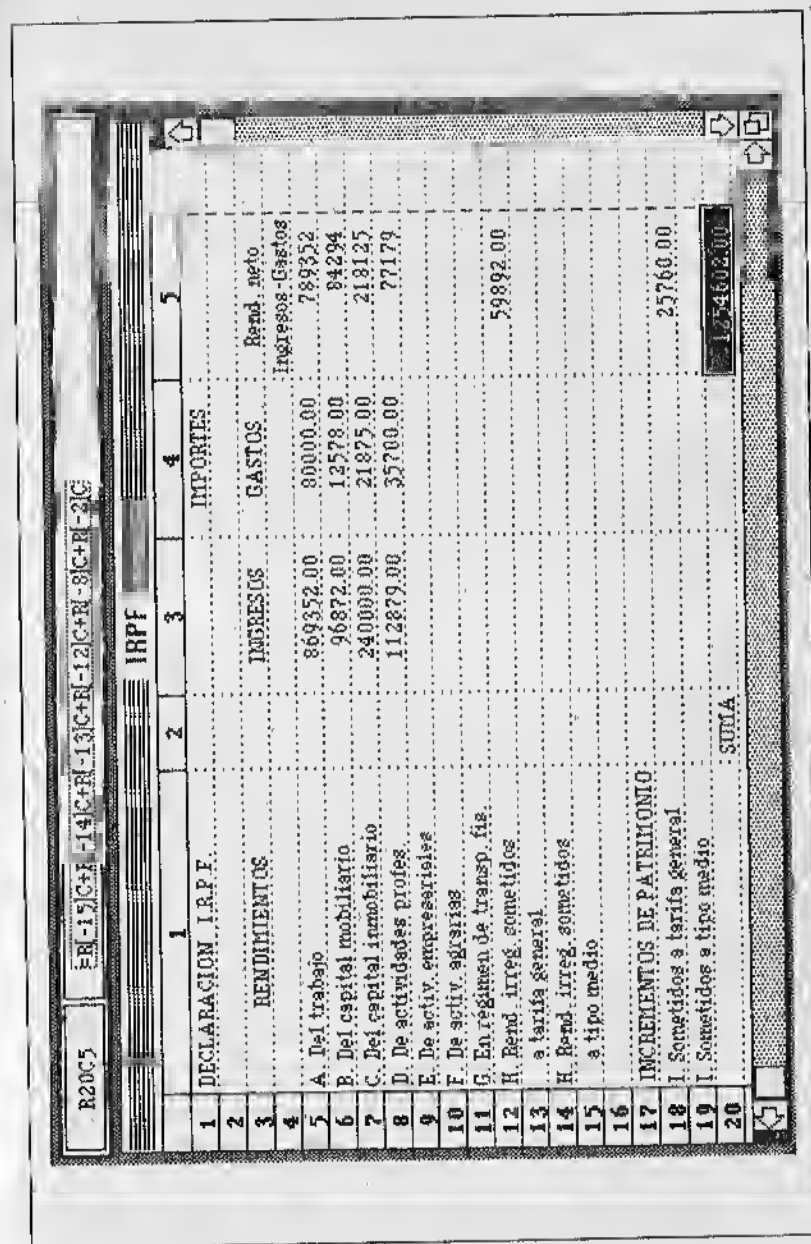 R20C5 =R[-15]C+R[-14]C+R[-13]C+R[-12]C+R[-8]C+R[-2]C
IRPF
1 2 3 4 5
1 DECLARACION I.R.P.F. IMPORTES
2
3 RENDIMIENTOS INGRESOS GASTOS Rend. neto
4 Ingresos-Gastos
5 A. Del trabajo 869352.00 80000.00 789352
6 B. Del capital mobiliario 96872.00 12578.00 84294
7 C. Del capital inmobiliario 240000.00 21875.00 218125
8 D. De actividades profes. 112879.00 35700.00 77179
9 E. De activ. empresariales
10 F. De activ. agrarias
11 G. En régimen de transp. fis.
12 H. Rend. irreg. sometidos 59892.00
13 a tarifa general
14 H. Rend. irreg. sometidos
15 a tipo medio
16
17 INCREMENTOS DE PATRIMONIO
18 I. Sometidos a tarifa general 25760.00
19 I. Sometidos a tipo medio
20 SUMA 1254602.00